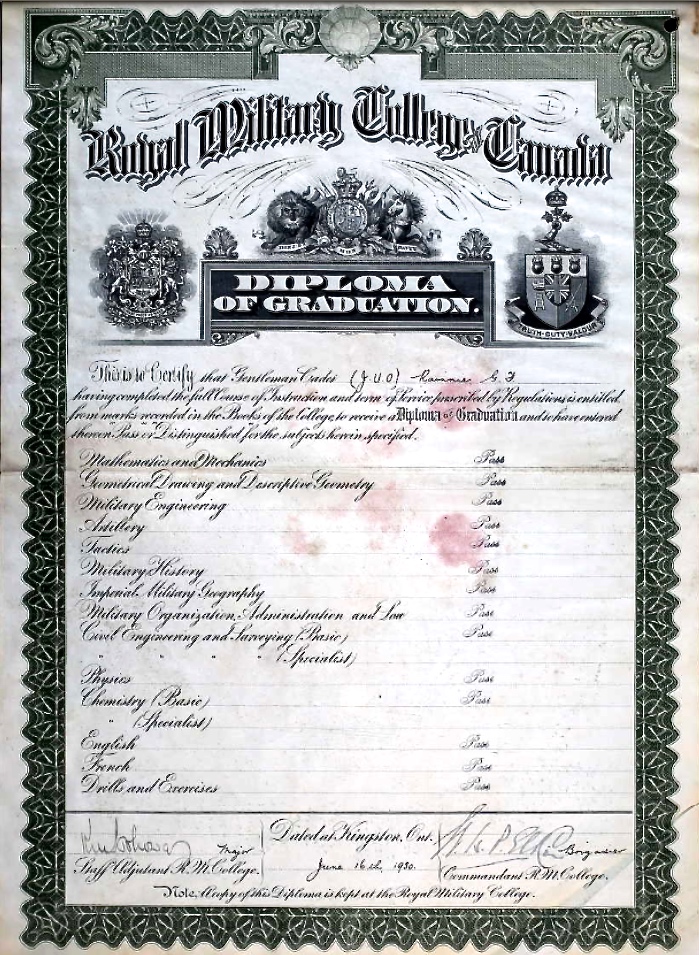 Royal Military College of Canada
DIEU ET MON DROIT
TRUTH·DUTY·VALOUR
DIPLOMA
OF GRADUATION.
This is to Certify that Gentleman Cadet (J.U.O)
having completed the full Course of Instruction and term of Service prescribed by Regulations is entitled,
from marks recorded in the Books of the College, to receive a Diploma of Graduation and to have entered
thereon "Pass" or "Distinguished" for the subjects herein specified.
Mathematics and Mechanics Pass
Geometrical Drawing and Descriptive Geometry Pass
Military Engineering Pass
Artillery Pass
Tactics Pass
Military History Pass
Imperial Military Geography Pass
Military Organization, Administration and Law Pass
Civil Engineering and Surveying (Basic) Pass
" " " " (Specialist)
Physics Pass
Chemistry (Basic) Pass
" (Specialist)
English Pass
French Pass
Drills and Exercises Pass
Dated at Kingston, Ont.
Major June 16th, 1930. Brigadier
Staff Adjutant R.M.College. Commandant R.M.College.
Note, A copy of this Diploma is kept at the Royal Military College.